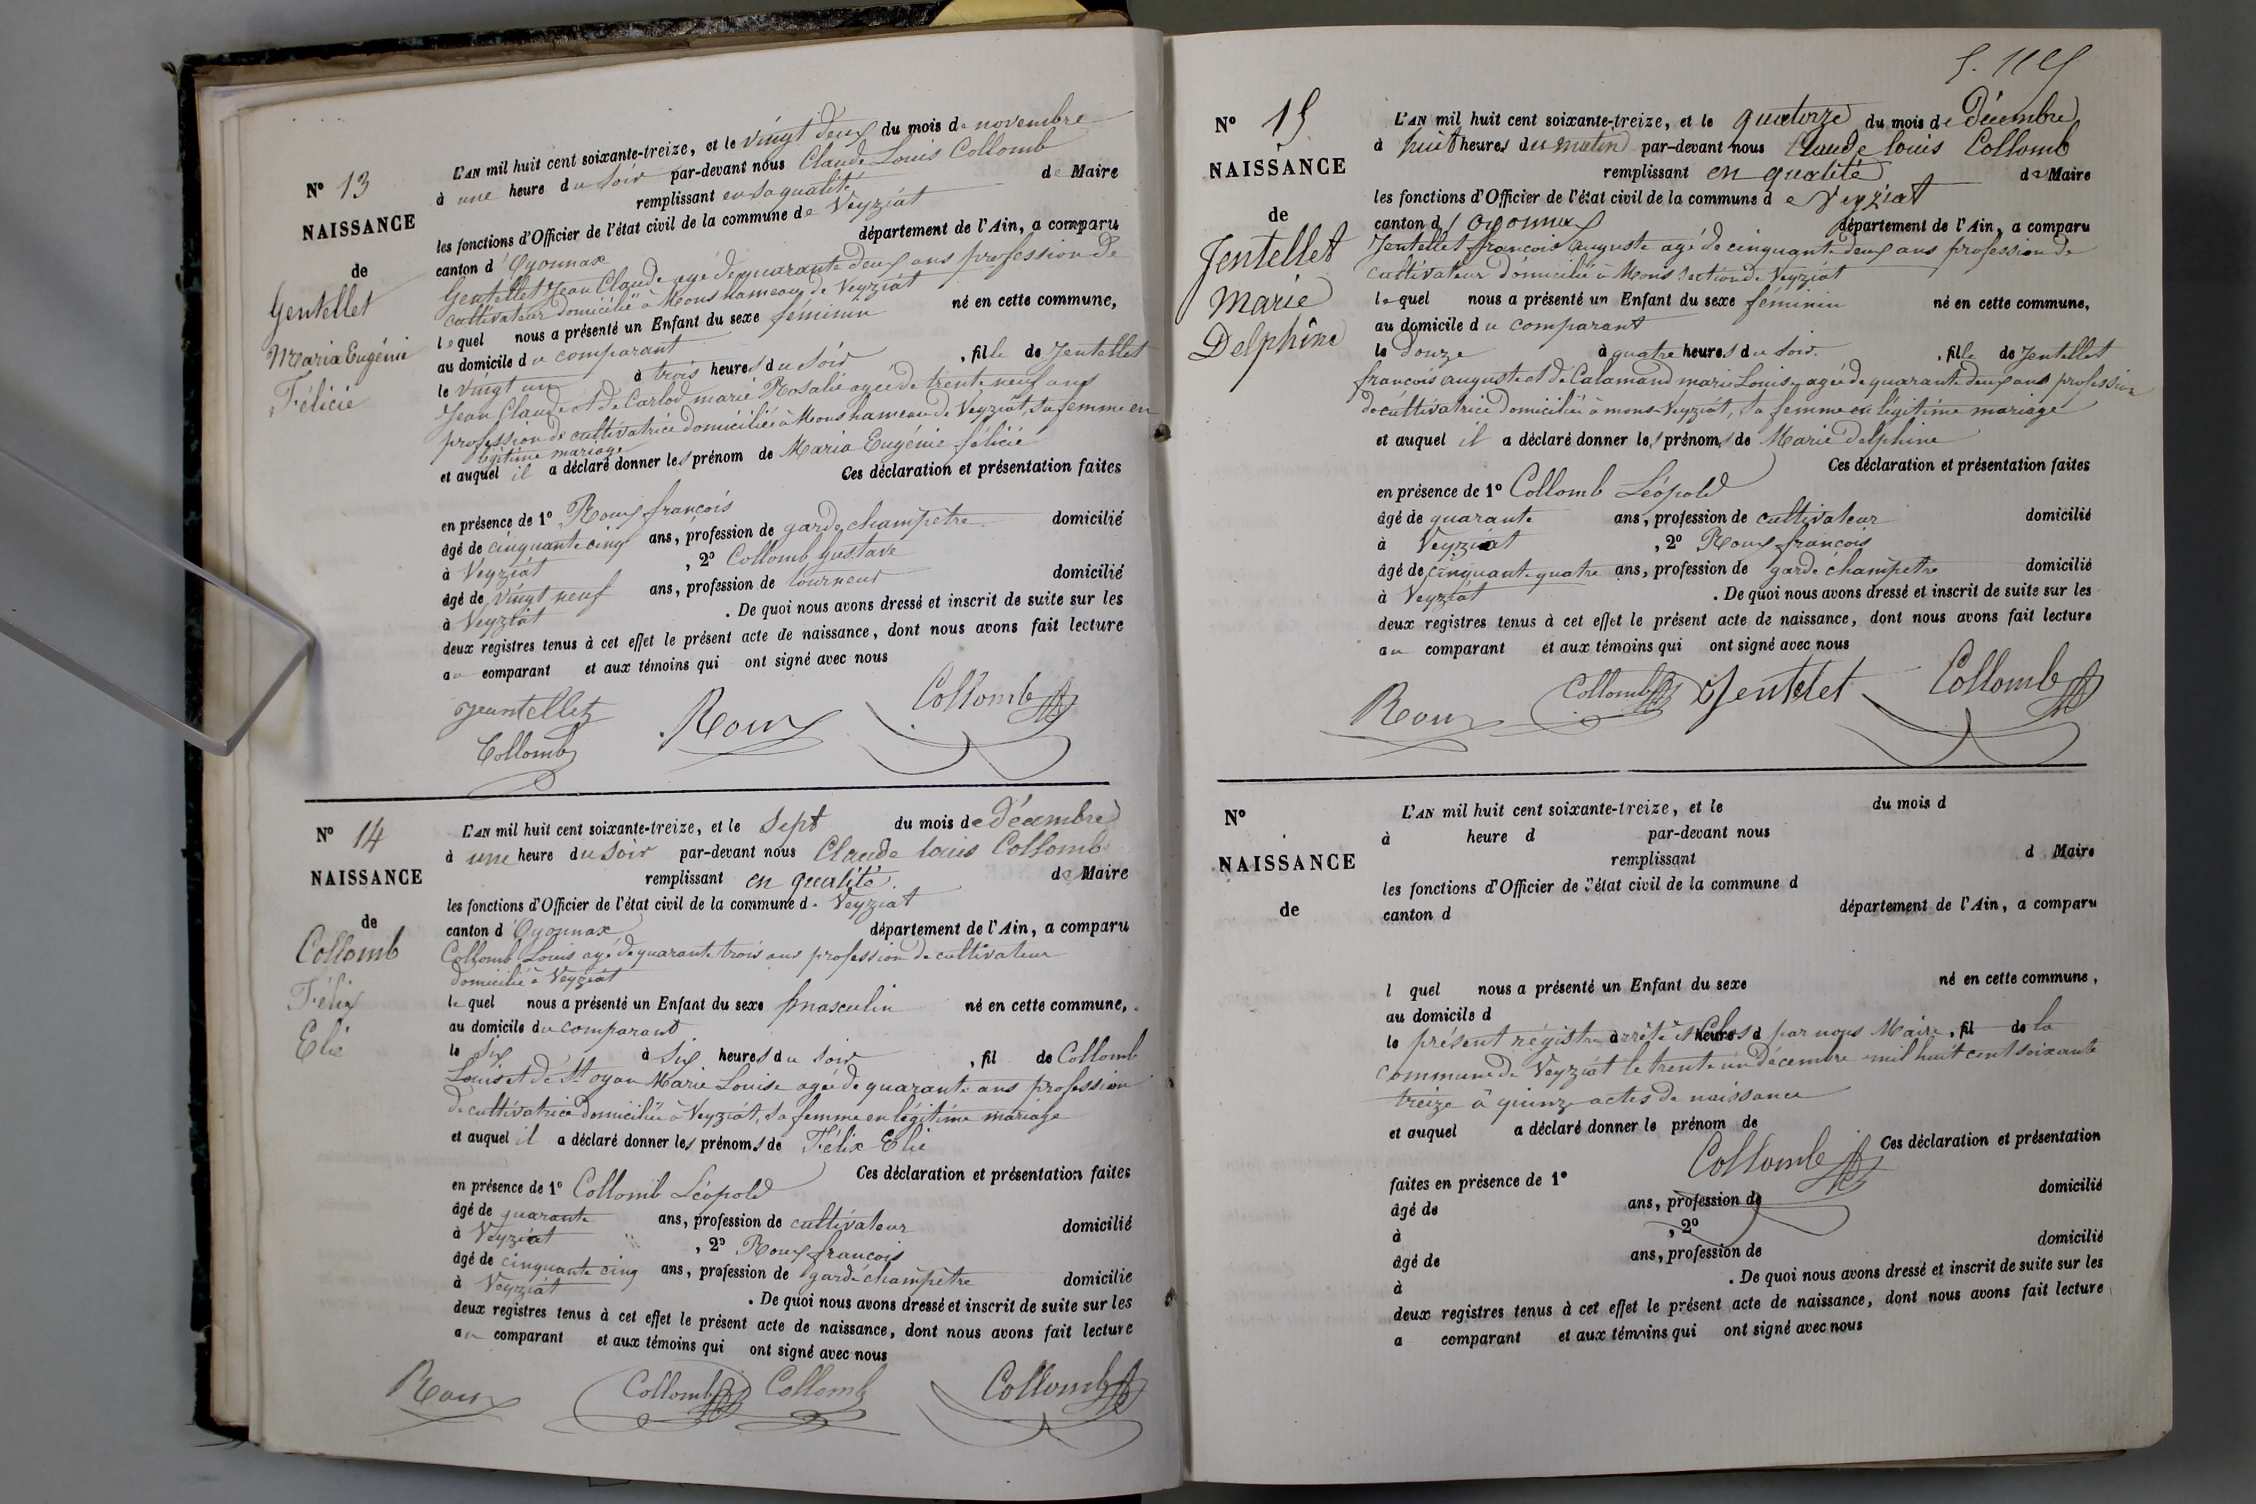 N° 13
NAISSANCE
de
Gentellet
Maria Eugénie
Félicie
L'AN mil huit cent soixante-treize, et le vingt deux du mois de novembre
à une heure du soir par-devant nous Claude Louis Collomb
remplissant en sa qualité de Maire
les fonctions d'Officier de l'état civil de la commune de Veyziat
canton d'Oyonnax département de l'Ain, a comparu
Gentellet Jean Claude agé de quarante deux ans profession de
cultivateur domicilié à Mons hameau de Veyziat
lequel nous a présenté un Enfant du sexe féminin né en cette commune,
au domicile du comparant
le vingt un à trois heures du soir, fille de Jentellet
Jean Claude et de Carlod marie Rosalie agée de trente neuf ans
profession de cultivatrice domiciliée à Mons hameau de Veyziat, sa femme en
légitime mariage
et auquel il a déclaré donner les prénom de Maria Eugénie félicie
Ces déclaration et présentation faites
en présence de 1° Roux françois
âgé de cinquante cinq ans, profession de garde champêtre domicilié
à Veyziat, 2° Collomb Gustave
âgé de vingt neuf ans, profession de tourneur domicilié
à Veyziat. De quoi nous avons dressé et inscrit de suite sur les
deux registres tenus à cet effet le présent acte de naissance, dont nous avons fait lecture
au comparant et aux témoins qui ont signé avec nous
Jeantellet Roux Collomb
Collomb
N° 14
NAISSANCE
de
Collomb
Félix
Elie
L'AN mil huit cent soixante-treize, et le Sept du mois de décembre
à une heure du soir par-devant nous Claude louis Collomb
remplissant en qualité de Maire
les fonctions d'Officier de l'état civil de la commune d. Veyziat
canton d'Oyonnax département de l'Ain, a comparu
Collomb Louis agé de quarante trois ans profession de cultivateur
domicilié à Veyziat
lequel nous a présenté un Enfant du sexe masculin né en cette commune,
au domicile du comparant
le six à six heures du soir, fil de Collomb
Louis et de St oyan Marie Louise agée de quarante ans profession
de cultivatrice domiciliée à Veyziat, sa femme en légitime mariage
et auquel il a déclaré donner les prénoms de Félix Elie
Ces déclaration et présentation faites
en présence de 1° Collomb Léopold
âgé de quarante ans, profession de cultivateur domicilié
à Veyziat, 2° Roux francois
âgé de cinquante cinq ans, profession de garde champêtre domicilié
à Veyziat. De quoi nous avons dressé et inscrit de suite sur les
deux registres tenus à cet effet le présent acte de naissance, dont nous avons fait lecture
au comparant et aux témoins qui ont signé avec nous
Roux Collomb Collomb Collomb
N° 15
NAISSANCE
de
Jentellet
Marie
Delphine
L'AN mil huit cent soixante-treize, et le quatorze du mois de décembre
à huit heures du matin par-devant nous Claude louis Collomb
remplissant en qualité de Maire
les fonctions d'Officier de l'état civil de la commune de Veyziat
canton d'oyonnax département de l'Ain, a comparu
Jentellet francois auguste agé de cinquante deux ans profession de
cultivateur domicilié à Mons section de Veyziat
lequel nous a présenté un Enfant du sexe féminin né en cette commune,
au domicile du comparant
le douze à quatre heures du soir, fille de Jentellet
francois auguste et de Calamand marie Louise agée de quarante deux ans profession
de cultivatrice domiciliée à mons-Veyziat, sa femme en légitime mariage
et auquel il a déclaré donner les prénoms de Marie delphine
Ces déclaration et présentation faites
en présence de 1° Collomb Léopold
âgé de quarante ans, profession de cultivateur domicilié
à Veyziat, 2° Roux francois
âgé de cinquante quatre ans, profession de garde champêtre domicilié
à Veyziat. De quoi nous avons dressé et inscrit de suite sur les
deux registres tenus à cet effet le présent acte de naissance, dont nous avons fait lecture
au comparant et aux témoins qui ont signé avec nous
Roux Collomb Jentelet Collomb
N°
NAISSANCE
de
L'AN mil huit cent soixante-treize, et le du mois d
à heure d par-devant nous
remplissant d Maire
les fonctions d'Officier de l'état civil de la commune d
canton d département de l'Ain, a comparu
l quel nous a présenté un Enfant du sexe né en cette commune,
au domicile d
le présent régistre arrêté et clos heures d par nous Maire, fil de la
commune de Veyziat le trente un décembre mil huit cent soixante
treize à quinze actes de naissance
et auquel a déclaré donner le prénom de
Collomb Ces déclaration et présentation
faites en présence de 1°
âgé de ans, profession de domicilié
à, 2°
âgé de ans, profession de domicilié
à. De quoi nous avons dressé et inscrit de suite sur les
deux registres tenus à cet effet le présent acte de naissance, dont nous avons fait lecture
a comparant et aux témoins qui ont signé avec nous